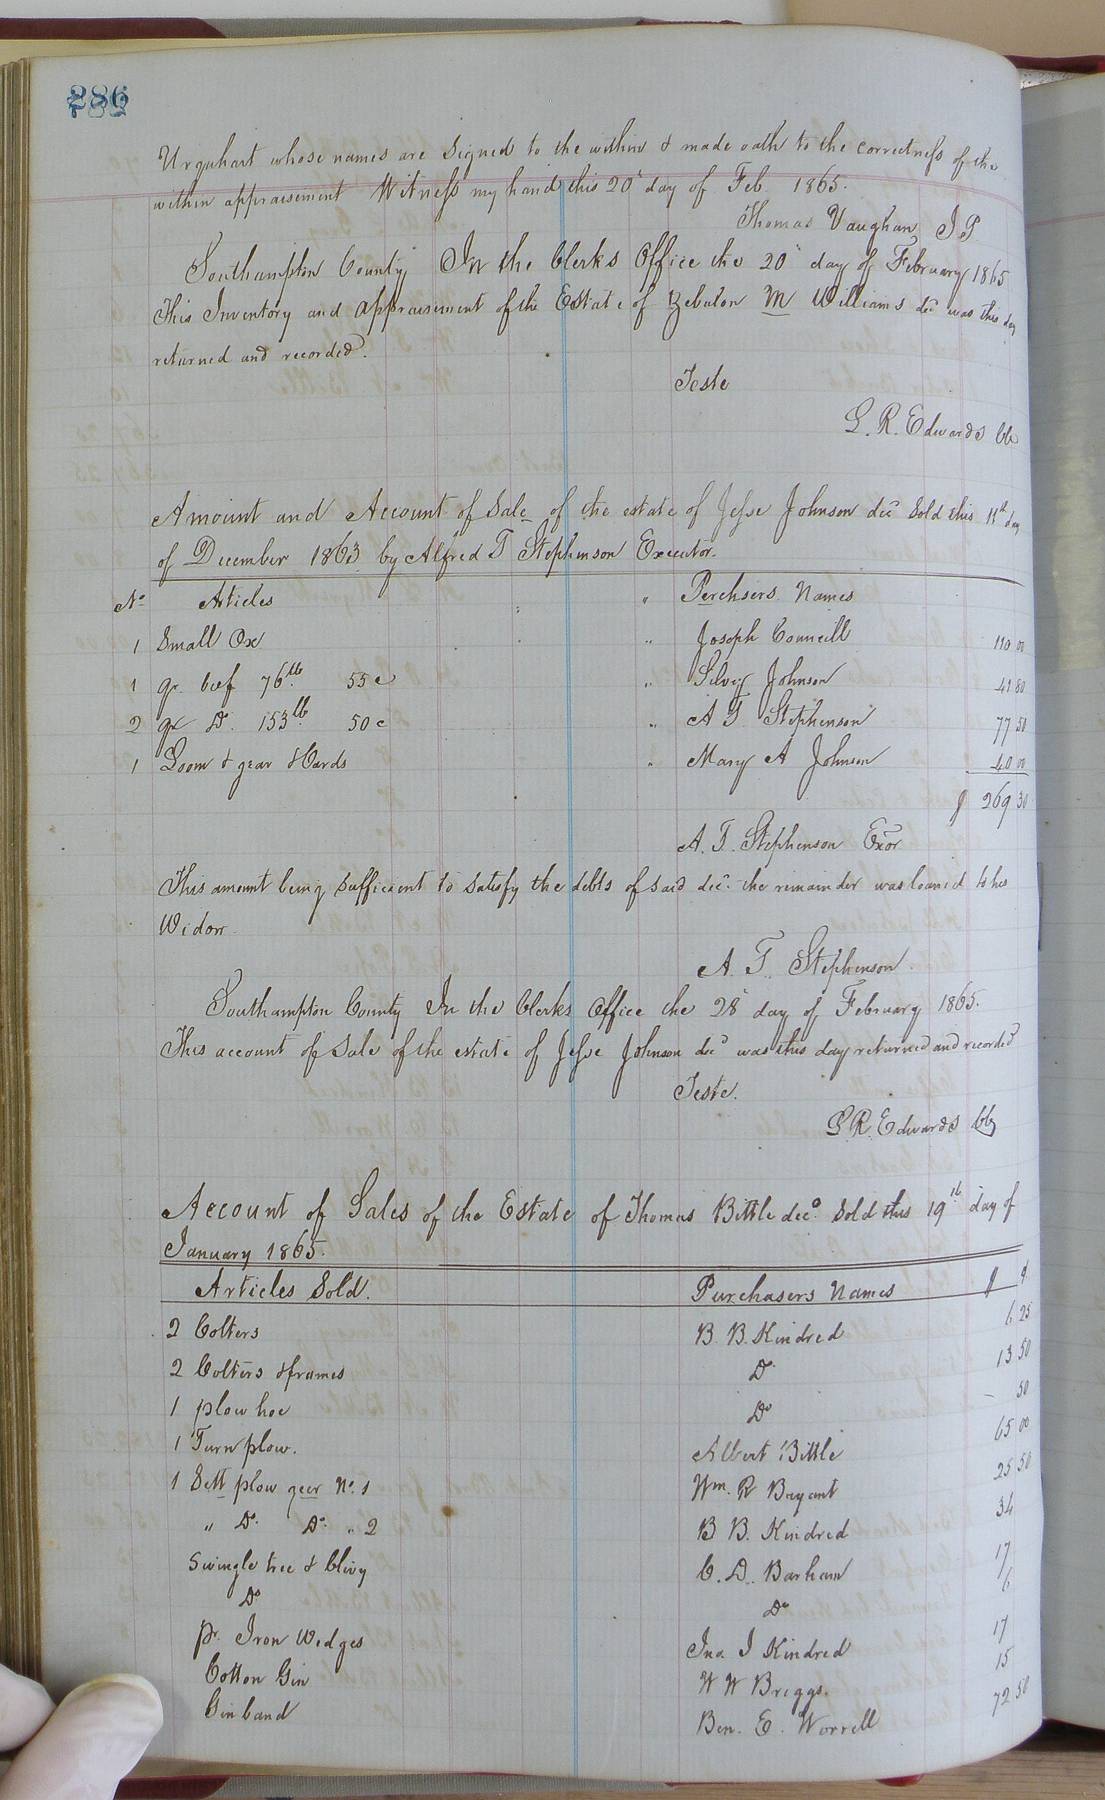 286
Urquhart whose names are signed to the within & made oath to the correctness of the
within appraisement Witness my hand this 20" day of Feb. 1865.
Thomas Vaughan J P
Southampton County In the Clerks Office the 20" day of February 1865
This Inventory and Appraisement of the Estate of Zebulon M Williams decd was this day
returned and recorded.
Teste
L. R. Edwards Clk
Amount and Account of Sale of the estate of Jesse Johnson decd Sold this 11th day
of December 1863 by Alfred T Stephenson Executor.
No Articles " Perchsers Names
1 Small Ox " Joseph Councill 110 00
1 qr. beef 76 lb 55 c " Silvy Johnson 41 80
2 qr Do. 153 lb 50 c " A T Stephenson 77 50
1 Loom & gear & Cards " Mary A Johnson 40 00
$ 269 30
A. T. Stephenson Exor
This amount being sufficient to satisfy the debts of said decd the remainder was loaned to his
Widow.
A. T. Stephenson.
Southampton County In the Clerks Office the 28" day of February 1865.
This account of sale of the estate of Jesse Johnson decd was this day returned and recorded
Teste.
L R. Edwards Clk
Account of Sales of the Estate of Thomas Bittle decd. Sold this 19th day of
January 1865.
Articles Sold. Purchasers Names $ ¢
2 Colters B. B. Kindred 6 25
2 Colters & frames Do 13 50
1 plow hoe Do – 50
1 Turn plow. Albert Bittle 65 00
1 Sett plow geer No. 1 Wm. R Bryant 25 50
" Do. Do. " 2 B B. Kindred 34
Swingle tree & Clivy C. D. Barham 17
Do Do 6
pr. Iron Wedges Jno. J Kindred 17
Cotton Gin W W Briggs. 15
Gin band Ben. E. Worrell 72 50